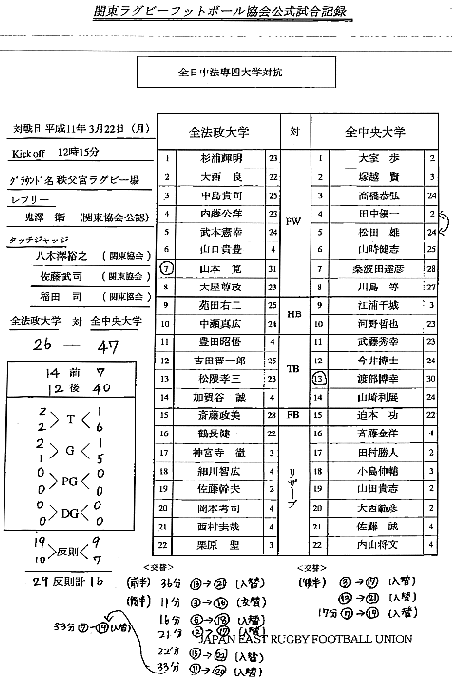 関東ラグビーフットボール協会公式試合記録
全日中法専四大学対抗
対戦日 平成11年 3月22日 (月)
Kick off 12時15分
グラウンド名 秩父宮ラグビー場
レフリー
(関東協会公認)
タッチジャッジ
八木澤裕之 (関東協会)
佐藤武司 (関東協会)
福田 司 (関東協会)
全法政大学 対 全中央大学
26 — 47
14 前 7
12 後 40
2 > T < 1
2 6
2 > G < 1
1 5
0 > PG < 0
0 0
0 > DG < 0
0 0
19 > 反則 < 9
10 7
29 反則計 16
全法政大学 対 全中央大学
1 杉浦輝明 23 1 大室 歩 2
2 大西 良 22 2 塚越 賢 3
3 中島貴司 25 3 高橋恭弘 24
4 内藤公洋 23 FW 4 田中俊一 2
5 武木憲幸 24 5 松田 雄 24
6 山口貴豊 4 6 山崎健志 25
7 山本 寛 31 7 桑波田達彦 28
8 大屋尊政 23 8 川島 等 27
9 苑田右二 25 HB 9 江浦千城 3
10 中瀬真広 24 10 河野哲也 23
11 豊田昭借 4 11 武藤秀幸 23
12 吉田晋一郎 25 TB 12 今井博士 24
13 松隈孝三 23 13 渡部博幸 30
14 加賀谷 誠 4 14 山崎利展 24
15 斎藤政美 28 FB 15 迫本 功 22
16 鶴長健 22 16 斉藤金洋 4
17 神宮寺 徹 3 リザーブ 17 田村勝人 2
18 細川智広 4 18 小島伸輔 3
19 佐藤幹夫 2 19 山田貴志 2
20 岡本秀司 4 20 大西範彦 2
21 西村圭哉 4 21 佐藤 誠 4
22 栗原 聖 3 22 内山将文 4
<交替> <交替>
(前半) 36分 (入替) (後半) (入替)
(後半) 11分 (交替) (入替)
16分 (入替) 17分 (入替)
21分 (入替)
53分 (入替)
JAPAN EAST RUGBY FOOTBALL UNION
22分 (入替)
33分 (入替)